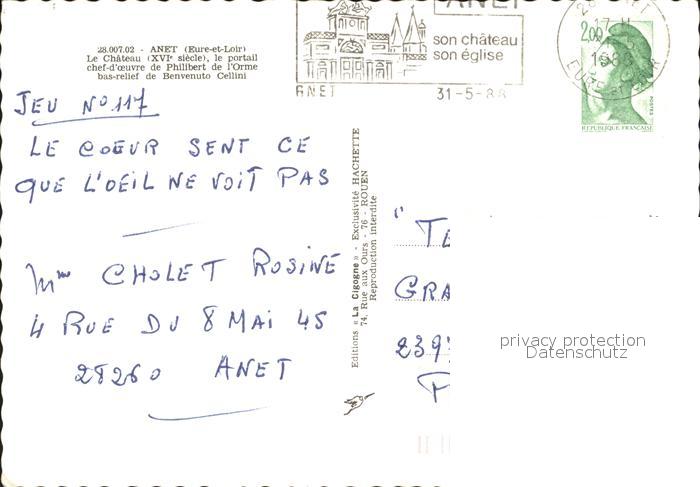 28.007.02 - ANET (Eure-et-Loir)
Le Château (XVIᵉ siècle), le portail
chef-d'œuvre de Philibert de l'Orme
bas-relief de Benvenuto Cellini
ANET
son château
son église
ANET
31-5-88
17 H
2,00
POSTES
REPUBLIQUE FRANÇAISE
JEU Nº 117
LE COEUR SENT CE
QUE L'OEIL NE VOIT PAS
Mme CHOLET ROSINE
4 RUE DU 8 MAI 45
28260 ANET
Editions « La Cigogne » - Exclusivité HACHETTE
74, Rue aux Ours - 76 - ROUEN
Reproduction interdite
GRA
privacy protection
Datenschutz